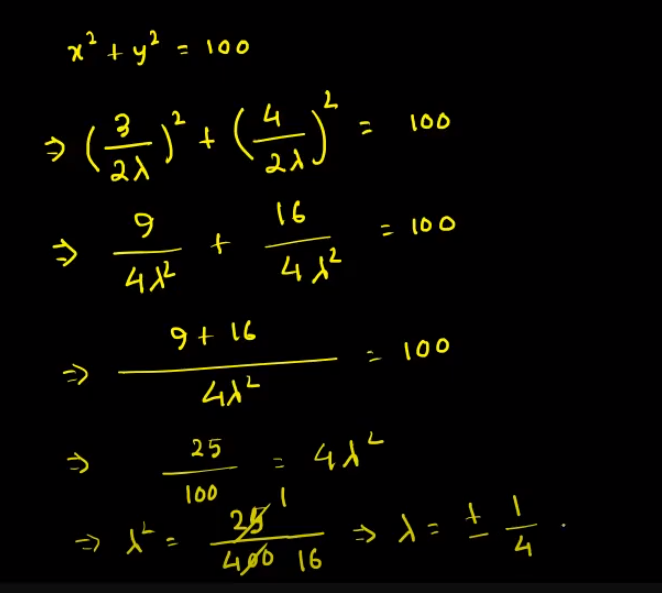 x² + y² = 100
⇒ (3/2λ)² + (4/2λ)² = 100
⇒ 9/4λ² + 16/4λ² = 100
⇒ (9 + 16)/4λ² = 100
⇒ 25/100 = 4λ²
⇒ λ² = 25/400 1/16 ⇒ λ = ± 1/4 .